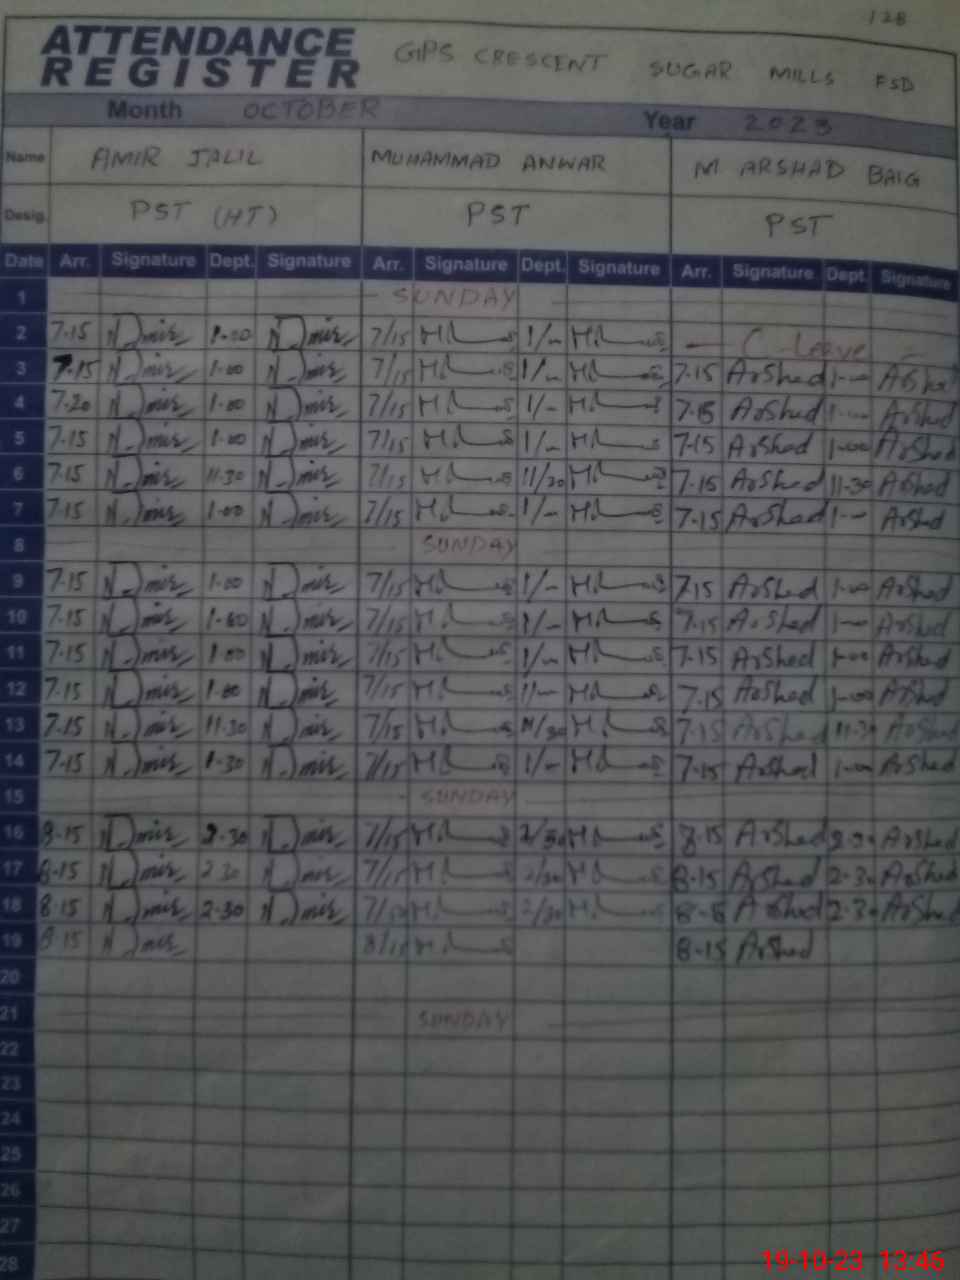 128
ATTENDANCE REGISTER GIPS CRESCENT SUGAR MILLS FSD
Month OCTOBER Year 2023
Name AMIR JALIL MUHAMMAD ANWAR M ARSHAD BAIG
Desig. PST (HT) PST PST
Date Arr. Signature Dept. Signature Arr. Signature Dept. Signature Arr. Signature Dept. Signature
1 SUNDAY
2 7-15 Amir 1-00 Amir 7/15 1/- C Leave
3 7-15 Amir 1-00 Amir 7/15 1/- 7-15 Arshed 1-- Arshed
4 7-20 Amir 1-00 Amir 7/15 1/- 7-15 Arshed 1-- Arshed
5 7-15 Amir 1-00 Amir 7/15 1/- 7-15 Arshed 1-00 Arshed
6 7-15 Amir 11-30 Amir 7/15 11/30 7-15 Arshed 11-30 Arshed
7 7-15 Amir 1-00 Amir 7/15 1/- 7-15 Arshed 1-- Arshed
8 SUNDAY
9 7-15 Amir 1-00 Amir 7/15 1/- 7-15 Arshed 1-00 Arshed
10 7-15 Amir 1-00 Amir 7/15 1/- 7-15 Arshed 1-- Arshed
11 7-15 Amir 1-00 Amir 7/15 1/- 7-15 Arshed 1-00 Arshed
12 7-15 Amir 1-00 Amir 7/15 1/- 7-15 Arshed 1-00 Arshed
13 7-15 Amir 11-30 Amir 7/15 11/30 7-15 Arshed 11-30 Arshed
14 7-15 Amir 1-30 Amir 7/15 1/- 7-15 Arshed 1-00 Arshed
15 SUNDAY
16 8-15 Amir 2-30 Amir 7/15 2/30 8-15 Arshed 2-30 Arshed
17 8-15 Amir 2-30 Amir 7/15 2/30 8-15 Arshed 2-30 Arshed
18 8-15 Amir 2-30 Amir 2/30 Arshed 2-30 Arshed
19 8-15 Amir 8/15 8-15 Arshed
20
21 SUNDAY
22
23
24
25
26
27
28
19-10-23 13:46